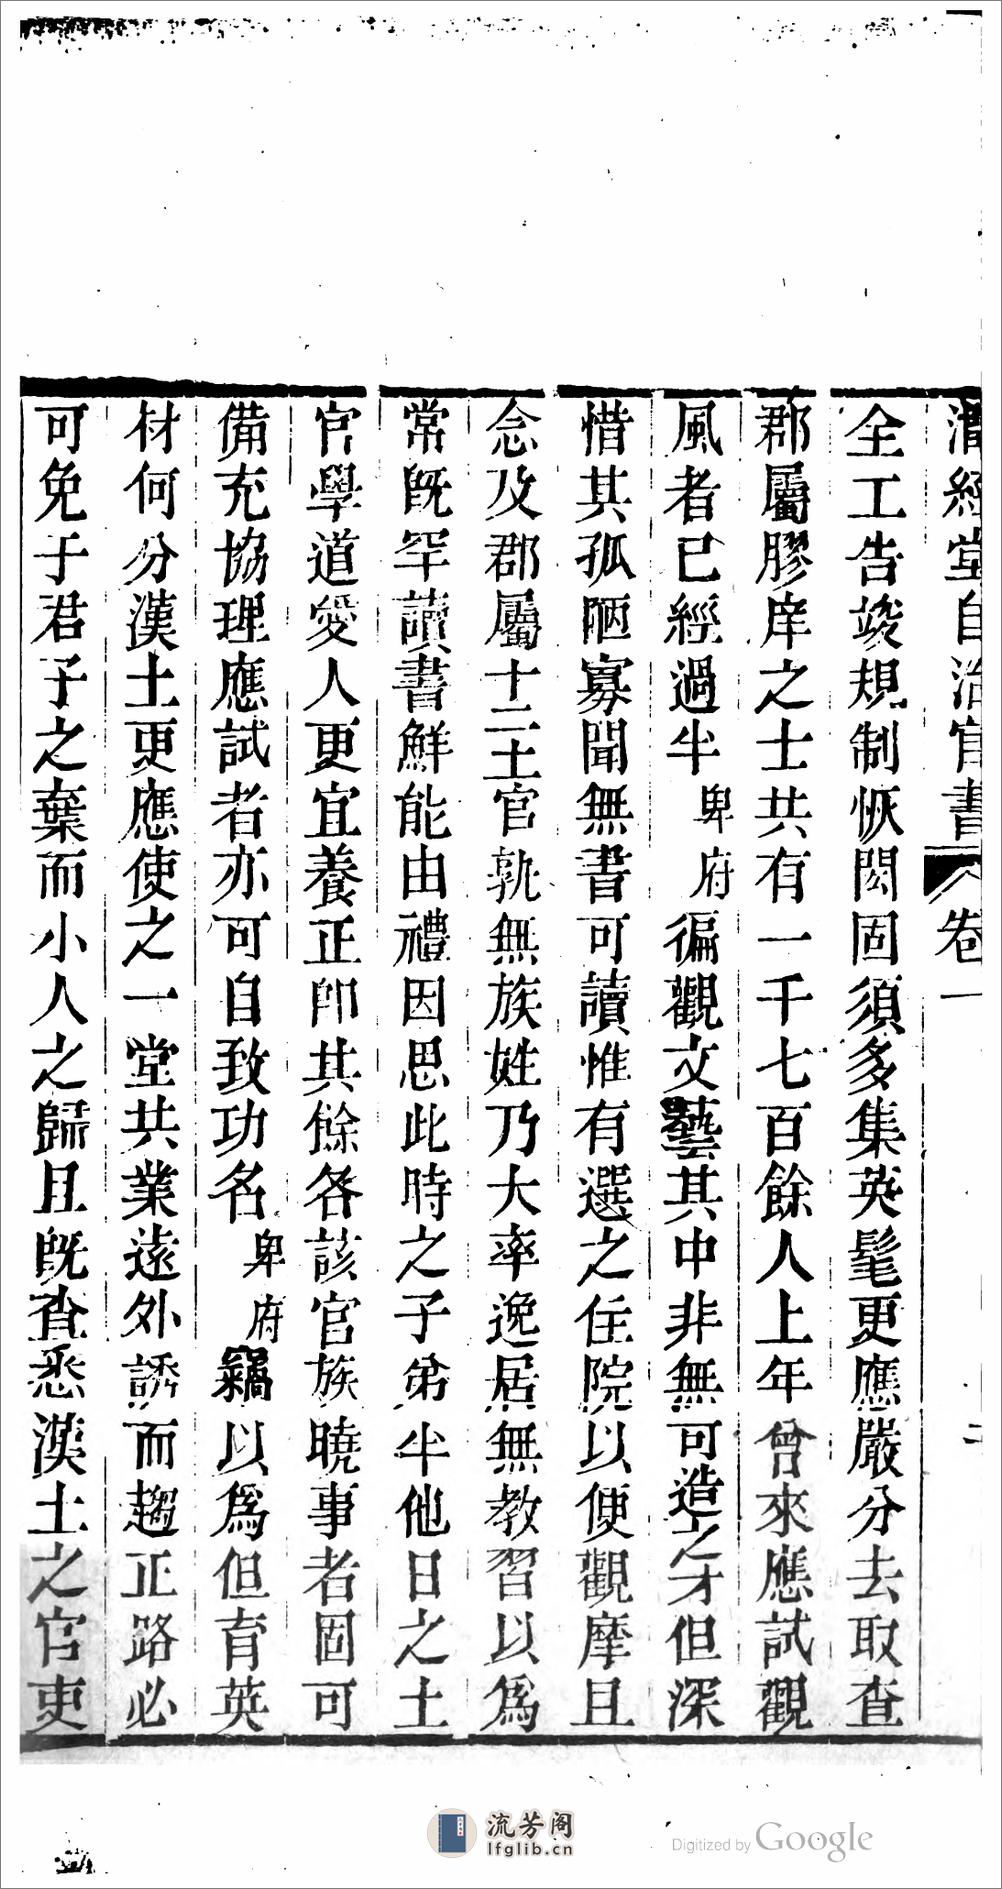 濳經堂自治官書 卷一 二
全工告竣規制恢閎固須多集英髦更應嚴分去取查
郡屬膠庠之士共有一千七百餘人上年曾來應試觀
風者已經過半卑府徧觀文藝其中非無可造之才但深
惜其孤陋寡聞無書可讀惟有選之住院以便觀摩且
念及郡屬十二土官孰無族姓乃大率逸居無教習以爲
常旣罕讀書鮮能由禮因思此時之子弟半他日之土
官學道愛人更宜養正卽其餘各該官族曉事者固可
備充協理應試者亦可自致功名卑府竊以爲但育英
材何分漢土更應使之一堂共業遠外誘而趨正路必
可免于君子之棄而小人之歸且旣查悉漢土之官吏
流芳阁
lfglib.cn
Digitized by Google